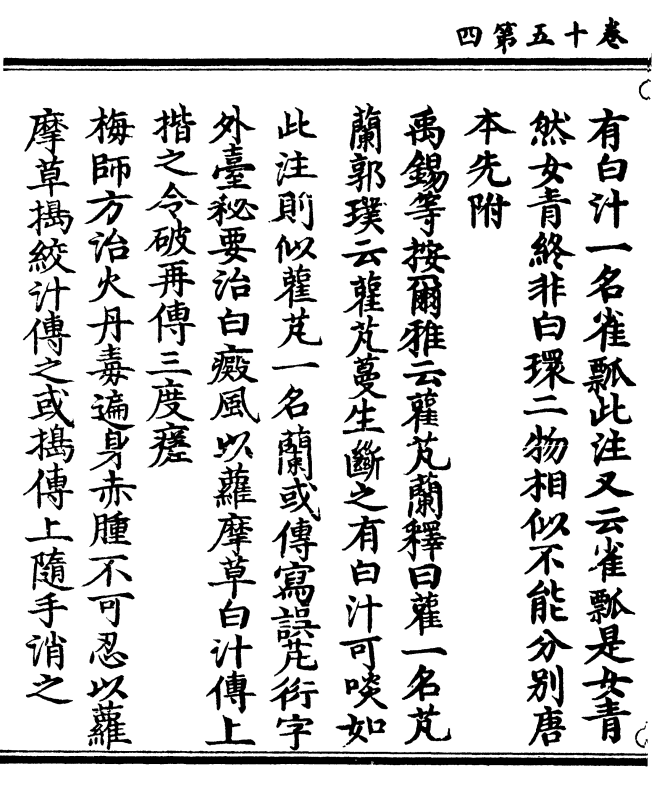 卷十五第四
有白汁一名雀瓢此注又云雀瓢是女青
然女青終非白環二物相似不能分别唐
本先附
禹錫等按爾雅云雚芄蘭釋曰雚一名芄
蘭郭璞云雚芄蔓生斷之有白汁可啖如
此注則似雚芄一名蘭或傳寫誤芄衍字
外臺秘要治白癜風以蘿摩草白汁傳上
揩之令破再傳三度瘥
梅師方治火丹毒遍身赤腫不可忍以蘿
摩草擣絞汁傳之或擣傳上隨手消之